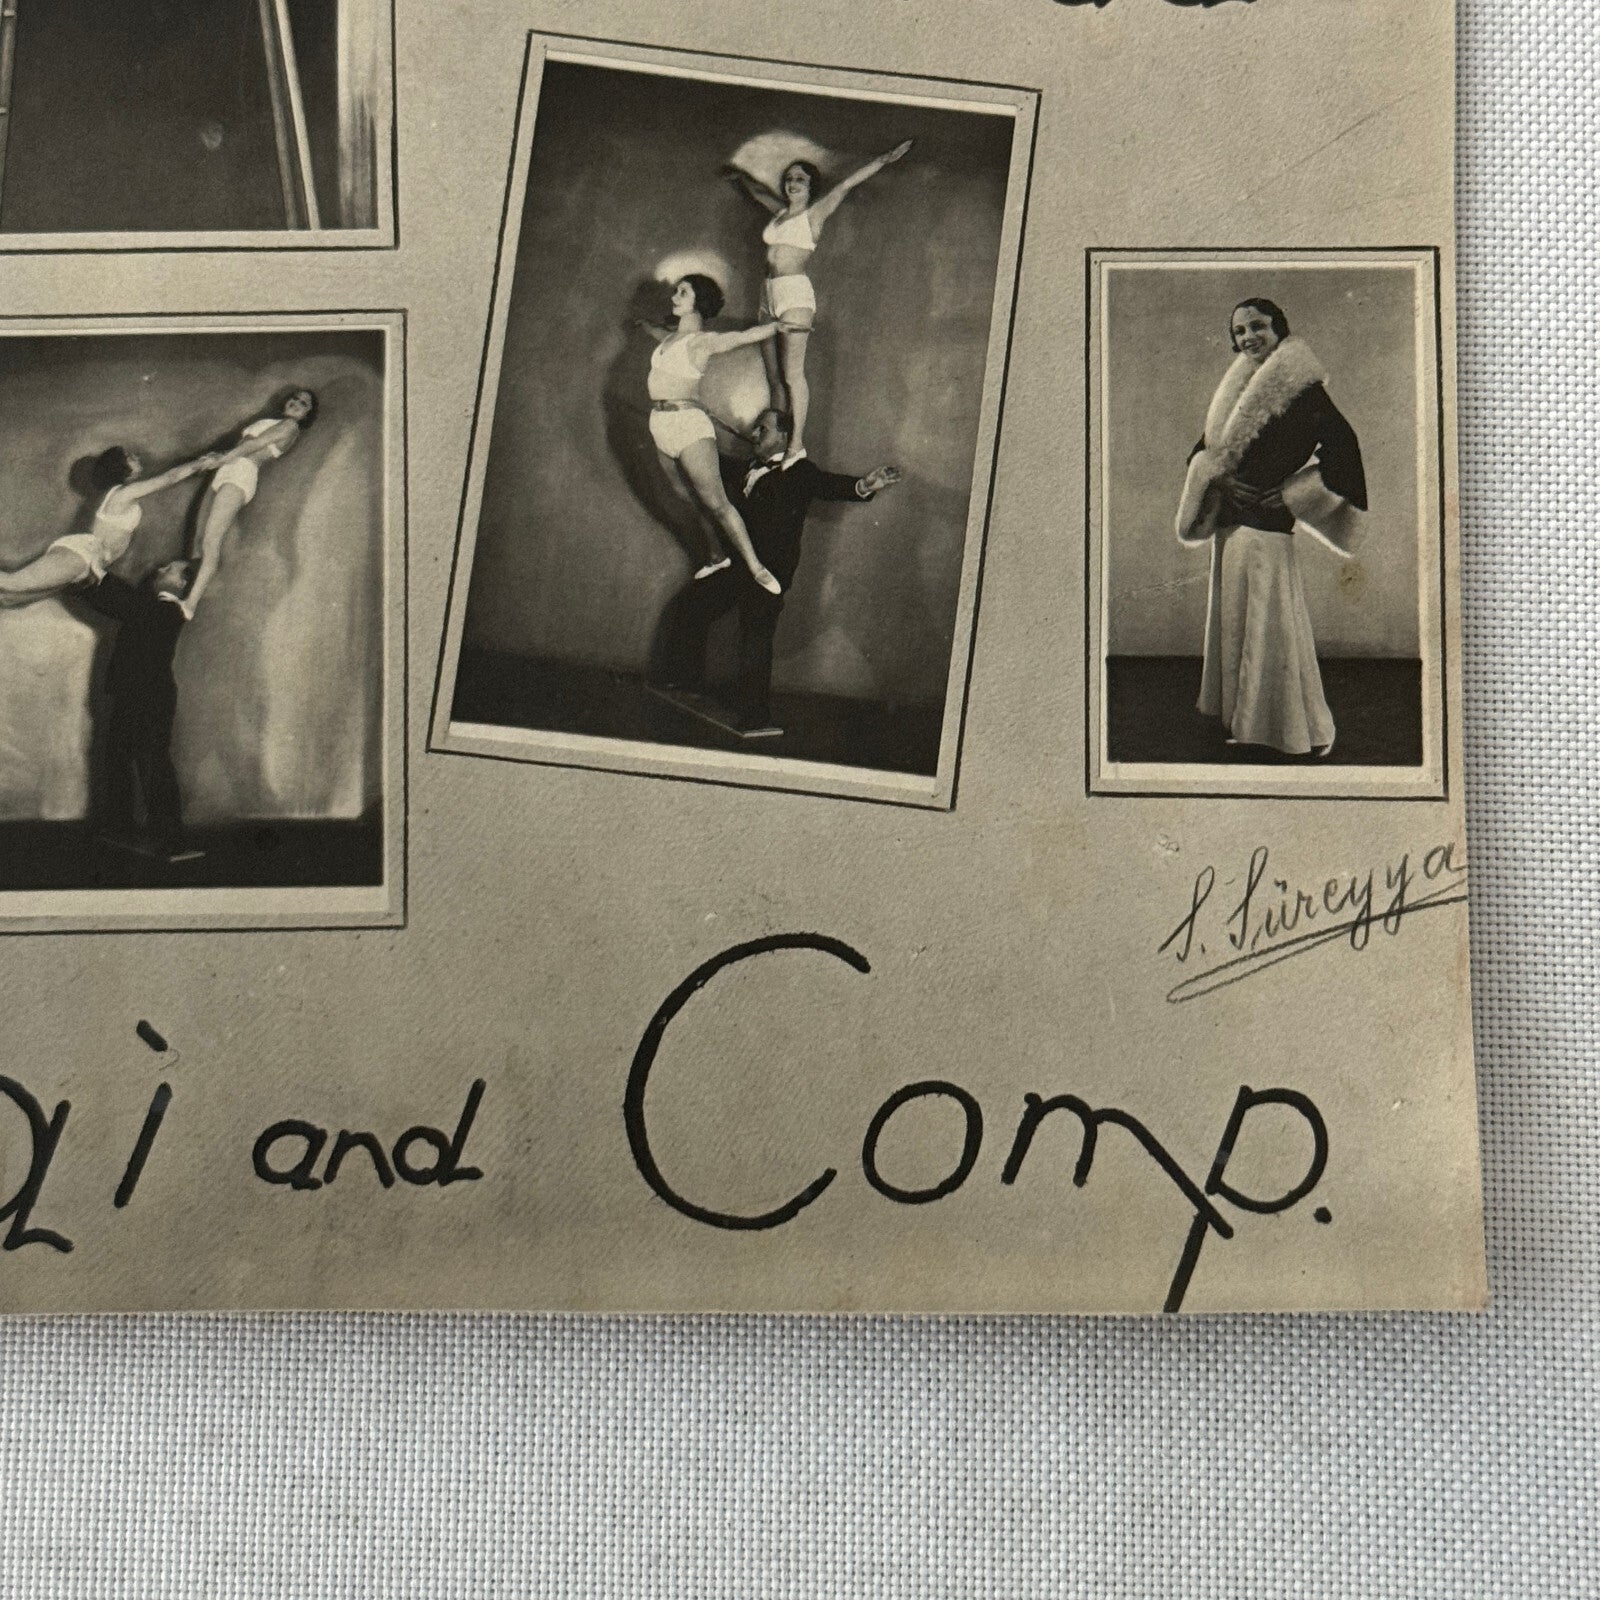 S. Süreyya
and Comp.